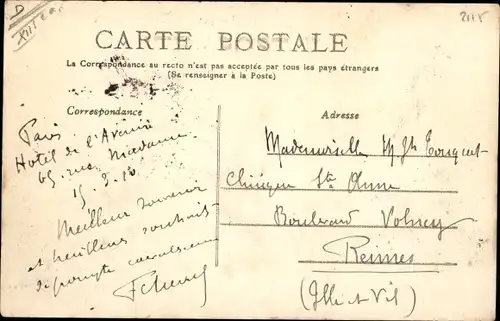 CARTE POSTALE
La Correspondance au recto n'est pas acceptée par tous les pays étrangers
(Se renseigner à la Poste)
Correspondance
Paris
Hotel de l'Avenir
65, rue Madame
Meilleur souvenir
et meilleurs souhaits
de prompte
Adresse
Mademoiselle
Clinique Ste Anne
Boulevard Volney
Rennes
(Ille-et-Vil)